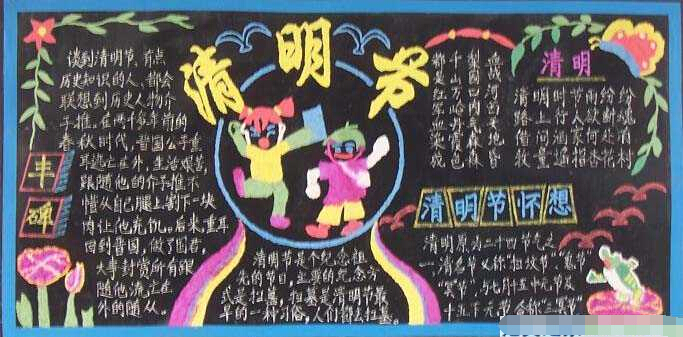 清明节
丰碑
谈到清明节,有点
历史知识的人,都会
联想到历史人物介
子推。在两千多年前的
春秋时代,晋国公子重
耳逃亡在外,生活艰苦,
跟随他的介子推不
惜从自己腿上割下一块
肉让他充饥。后来,重耳
回到晋国,做了国君,
大事封赏所有跟
随他流亡在
外的随从。
清明节是个纪念祖
先的节日,主要的纪念方
式是扫墓,扫墓是清明节最
早的一种习俗,人们都去扫墓。
血战河山
梨园
千山万岭
都是红军血染成
清明
清明时节雨纷纷
路上行人欲断魂
借问酒家何处有
牧童遥指杏花村
清明节怀想
清明原为二十四节气之
一,清名节又称"扫坟节"、"鬼节"
"冥节",与七月十五中元节及
十月十五下元节合称"三冥节"